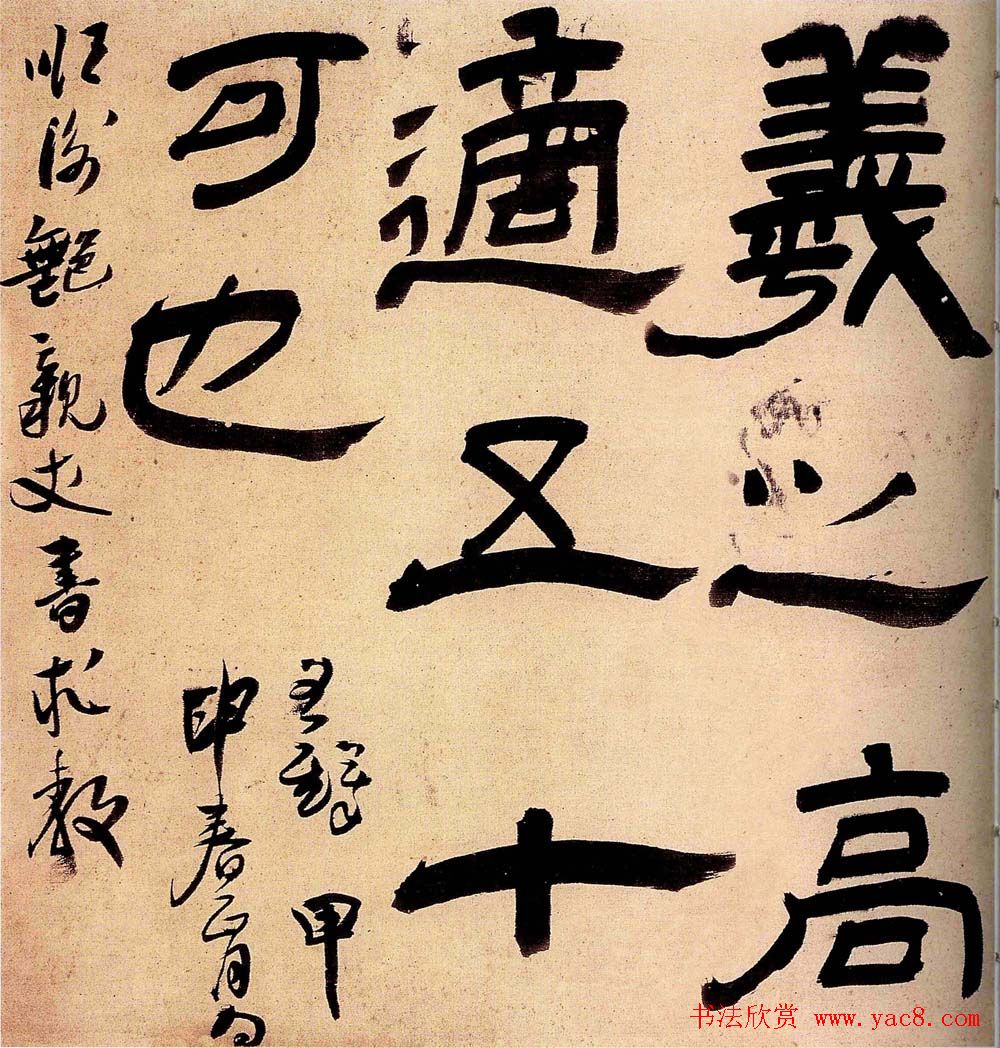 羲之高
適五十
可也
甲
申春正月為
艷親丈書求教
书法欣赏 www.yac8.com